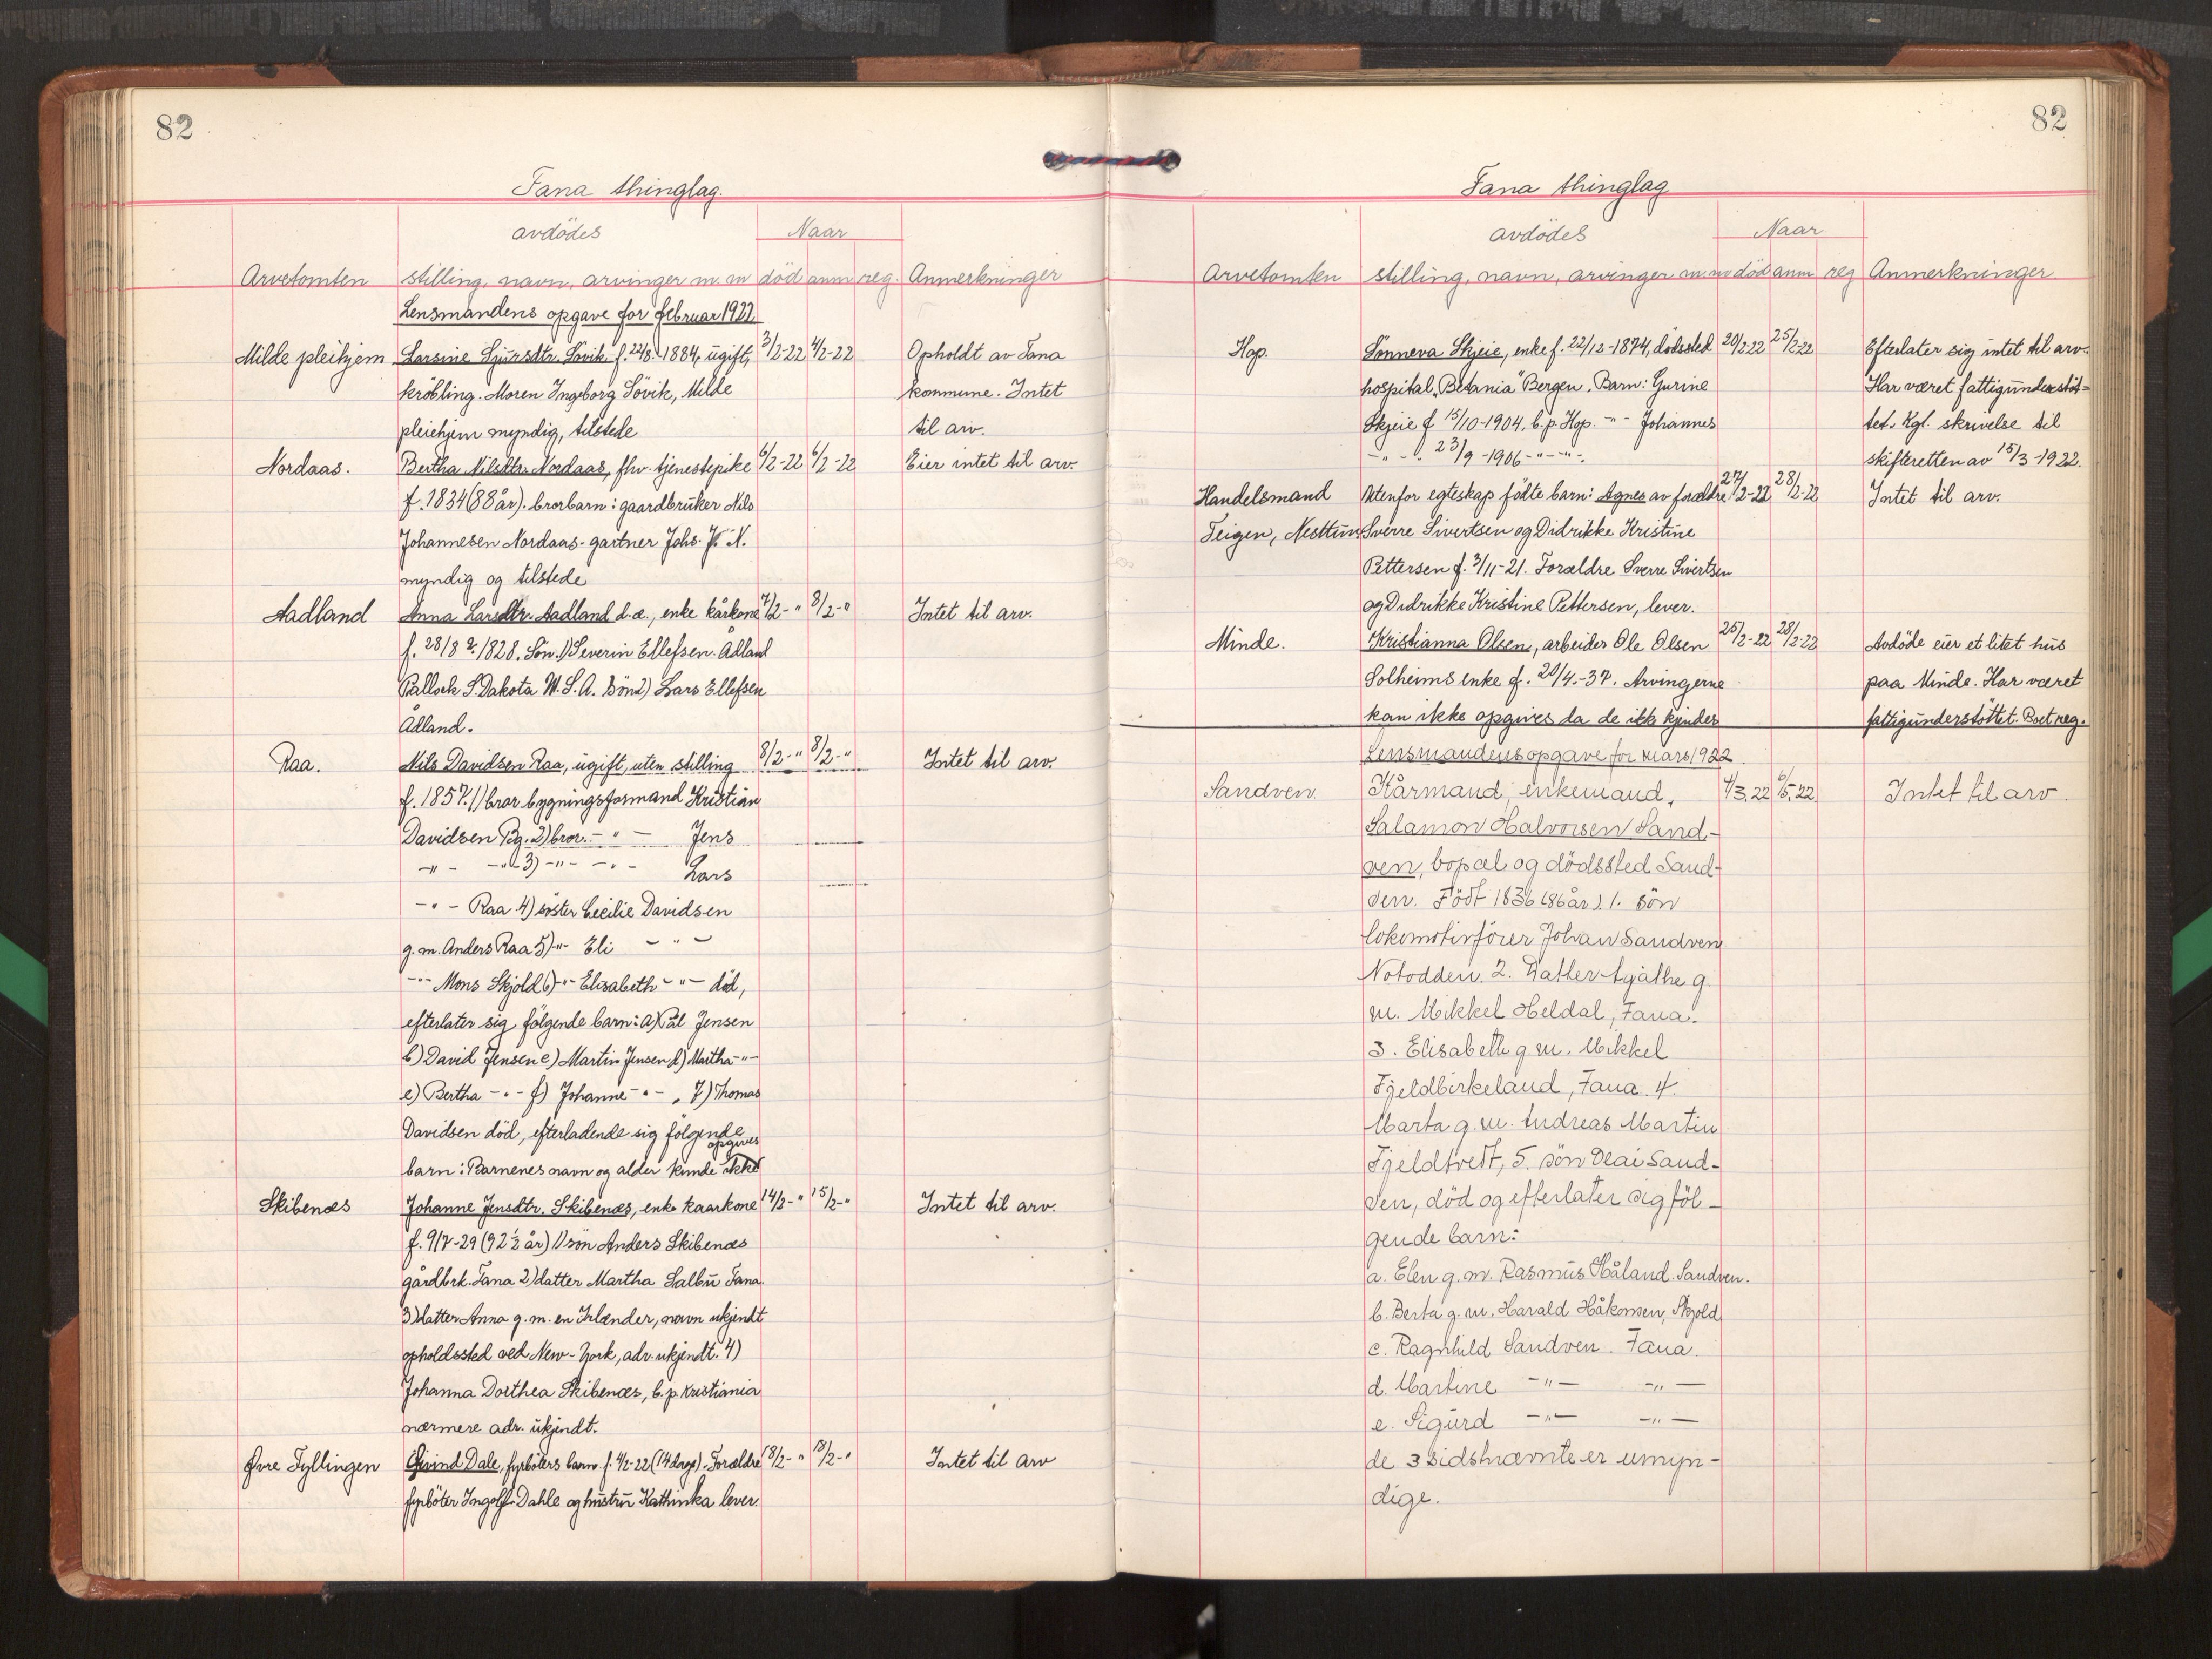 82
Fana thinglag.
avdödes Naar
Arvetomten stilling, navn, arvinger m m död anm reg. Anmerkninger
Lensmandens opgave for februar 1922
Milde pleihjem Larsine Sjursdtr. Sövik f. 22/8-1884, ugift, 3/2-22 4/2-22 Opholdt av Fana
kröbling. Moren Ingeborg Sövik, Milde kommune. Intet
pleiehjem myndig, tilstede til arv.
Nordaas. Bertha Nilsdtr. Nordaas, fhv. tjenestepike 6/2-22 6/2-22 Eier intet til arv.
f. 1834 (88 år). brorbarn: gaardbruker Nils
Johannesen Nordaas - gartner Johs. N.
myndig og tilstede
Aadland Anna Larsdtr. Aadland d.æ., enke kårkone 7/2-" 8/2-" Intet til arv.
f. 28/8 1828. Sön 1) Severin Ellefsen Ådland
Pallock S. Dakota U. S. A. Sön 2) Lars Ellefsen
Ådland.
Raa. Nils Davidsen Raa, ugift, uten stilling 8/2-" 8/2-" Intet til arv.
f. 1857. 1) bror bygningsformand Kristian
Davidsen Bg. 2) bror - " - Jens
- " - - " - 3) - " - - " - Lars
- " - Raa 4) söster Cecilie Davidsen
g. m. Anders Raa 5) - " - Eli - " -
- " - Mons Skjold 6) - " - Elisabeth - " - död,
efterlater sig følgende barn: a) Pål Jensen
b) David Jensen c) Martin Jensen d) Martha - " -
e) Bertha - " - f) Johanne - " -, 7) Thomas
Davidsen död, efterladende sig følgende
barn: Barnenes navn og alder kunde ikke opgives
Skibenes Johanne Jensdtr. Skibenæs, enke kaarkone 14/2-" 15/2-" Intet til arv.
f. 9/7-29 (92 1/2 år) 1) sön Anders Skibenæs
gårdbrk. Fana 2) datter Martha Salbu Fana
3) datter Anna g. m. en Irlænder, navn ukjendt
opholdssted ved New-York, adr. ukjendt. 4)
Johanna Dorthea Skibenæs, b. p. Kristiania
nærmere adr. ukjendt.
Øvre Fyllingen Øivind Dale, fyrböters barn f. 4/2-22 (14 dage). Forældre 18/2-" 18/2-" Intet til arv
fyrböter Ingolf Dahle og hustru Kathinka lever.
82
Fana thinglag
avdödes Naar
Arvetomten stilling, navn, arvinger m. m död anm reg Anmerkninger
Hop. Sönneva Skjeie, enke f. 22/12-1874, dødssted 20/2-22 25/2-22 Efterlater sig intet til arv.
hospital "Betania" Bergen. Barn: Gurine Har været fattigunderstöt-
Skjeie f 15/10-1904, b. p. Hop. - " - Johannes tet. Kgl. skrivelse til
- " - . 23/9-1906 - " - " -. skifteretten av 15/3-1922.
Handelsmand Utenfor egteskap födte barn: Agnes av forældre 27/2-22 28/2-22 Intet til arv.
Teigen, Nesttun Sverre Sivertsen og Didrikke Kristine
Pettersen f. 3/11-21. Forældre Sverre Sivertsen
og Didrikke Kristine Pettersen, lever.
Minde. Kristianna Olsen, arbeider Ole Olsen 25/2-22 28/2-22 Avdöde eier et litet hus
Solheims enke f. 20/4-37. Arvingerne paa Minde. Har været
kan ikke opgives da de ikke kjendes fattigunderstöttet. Boet reg.
Lensmandens opgave for mars 1922.
Sandven Kårmand, enkemand, 4/3.22 6/5.22 Intet til arv.
Salamon Halvorsen Sand-
ven, bopæl og dödssted Sand-
ven. Födt 1836 (86 år). 1. sön
lokomotivförer Johan Sandven
Notodden. 2. Datter Agathe g.
m. Mikkel Heldal, Fana.
3. Elisabeth g. m. Mikkel
Fjeldbirkeland, Fana. 4.
Marta g. m. Andreas Martin
Fjeldtvedt, 5. sön Olai Sand-
ven, död og efterlater sig föl-
gende barn:
a. Elen g. m. Rasmus Håland. Sandven.
b. Berta g. m. Harald Håkonsen, Skjold
c. Ragnhild Sandven. Fana.
d. Martine - " - - " -
e. Sigurd - " - - " -
de 3 sidstnævnte er umyn-
dige.